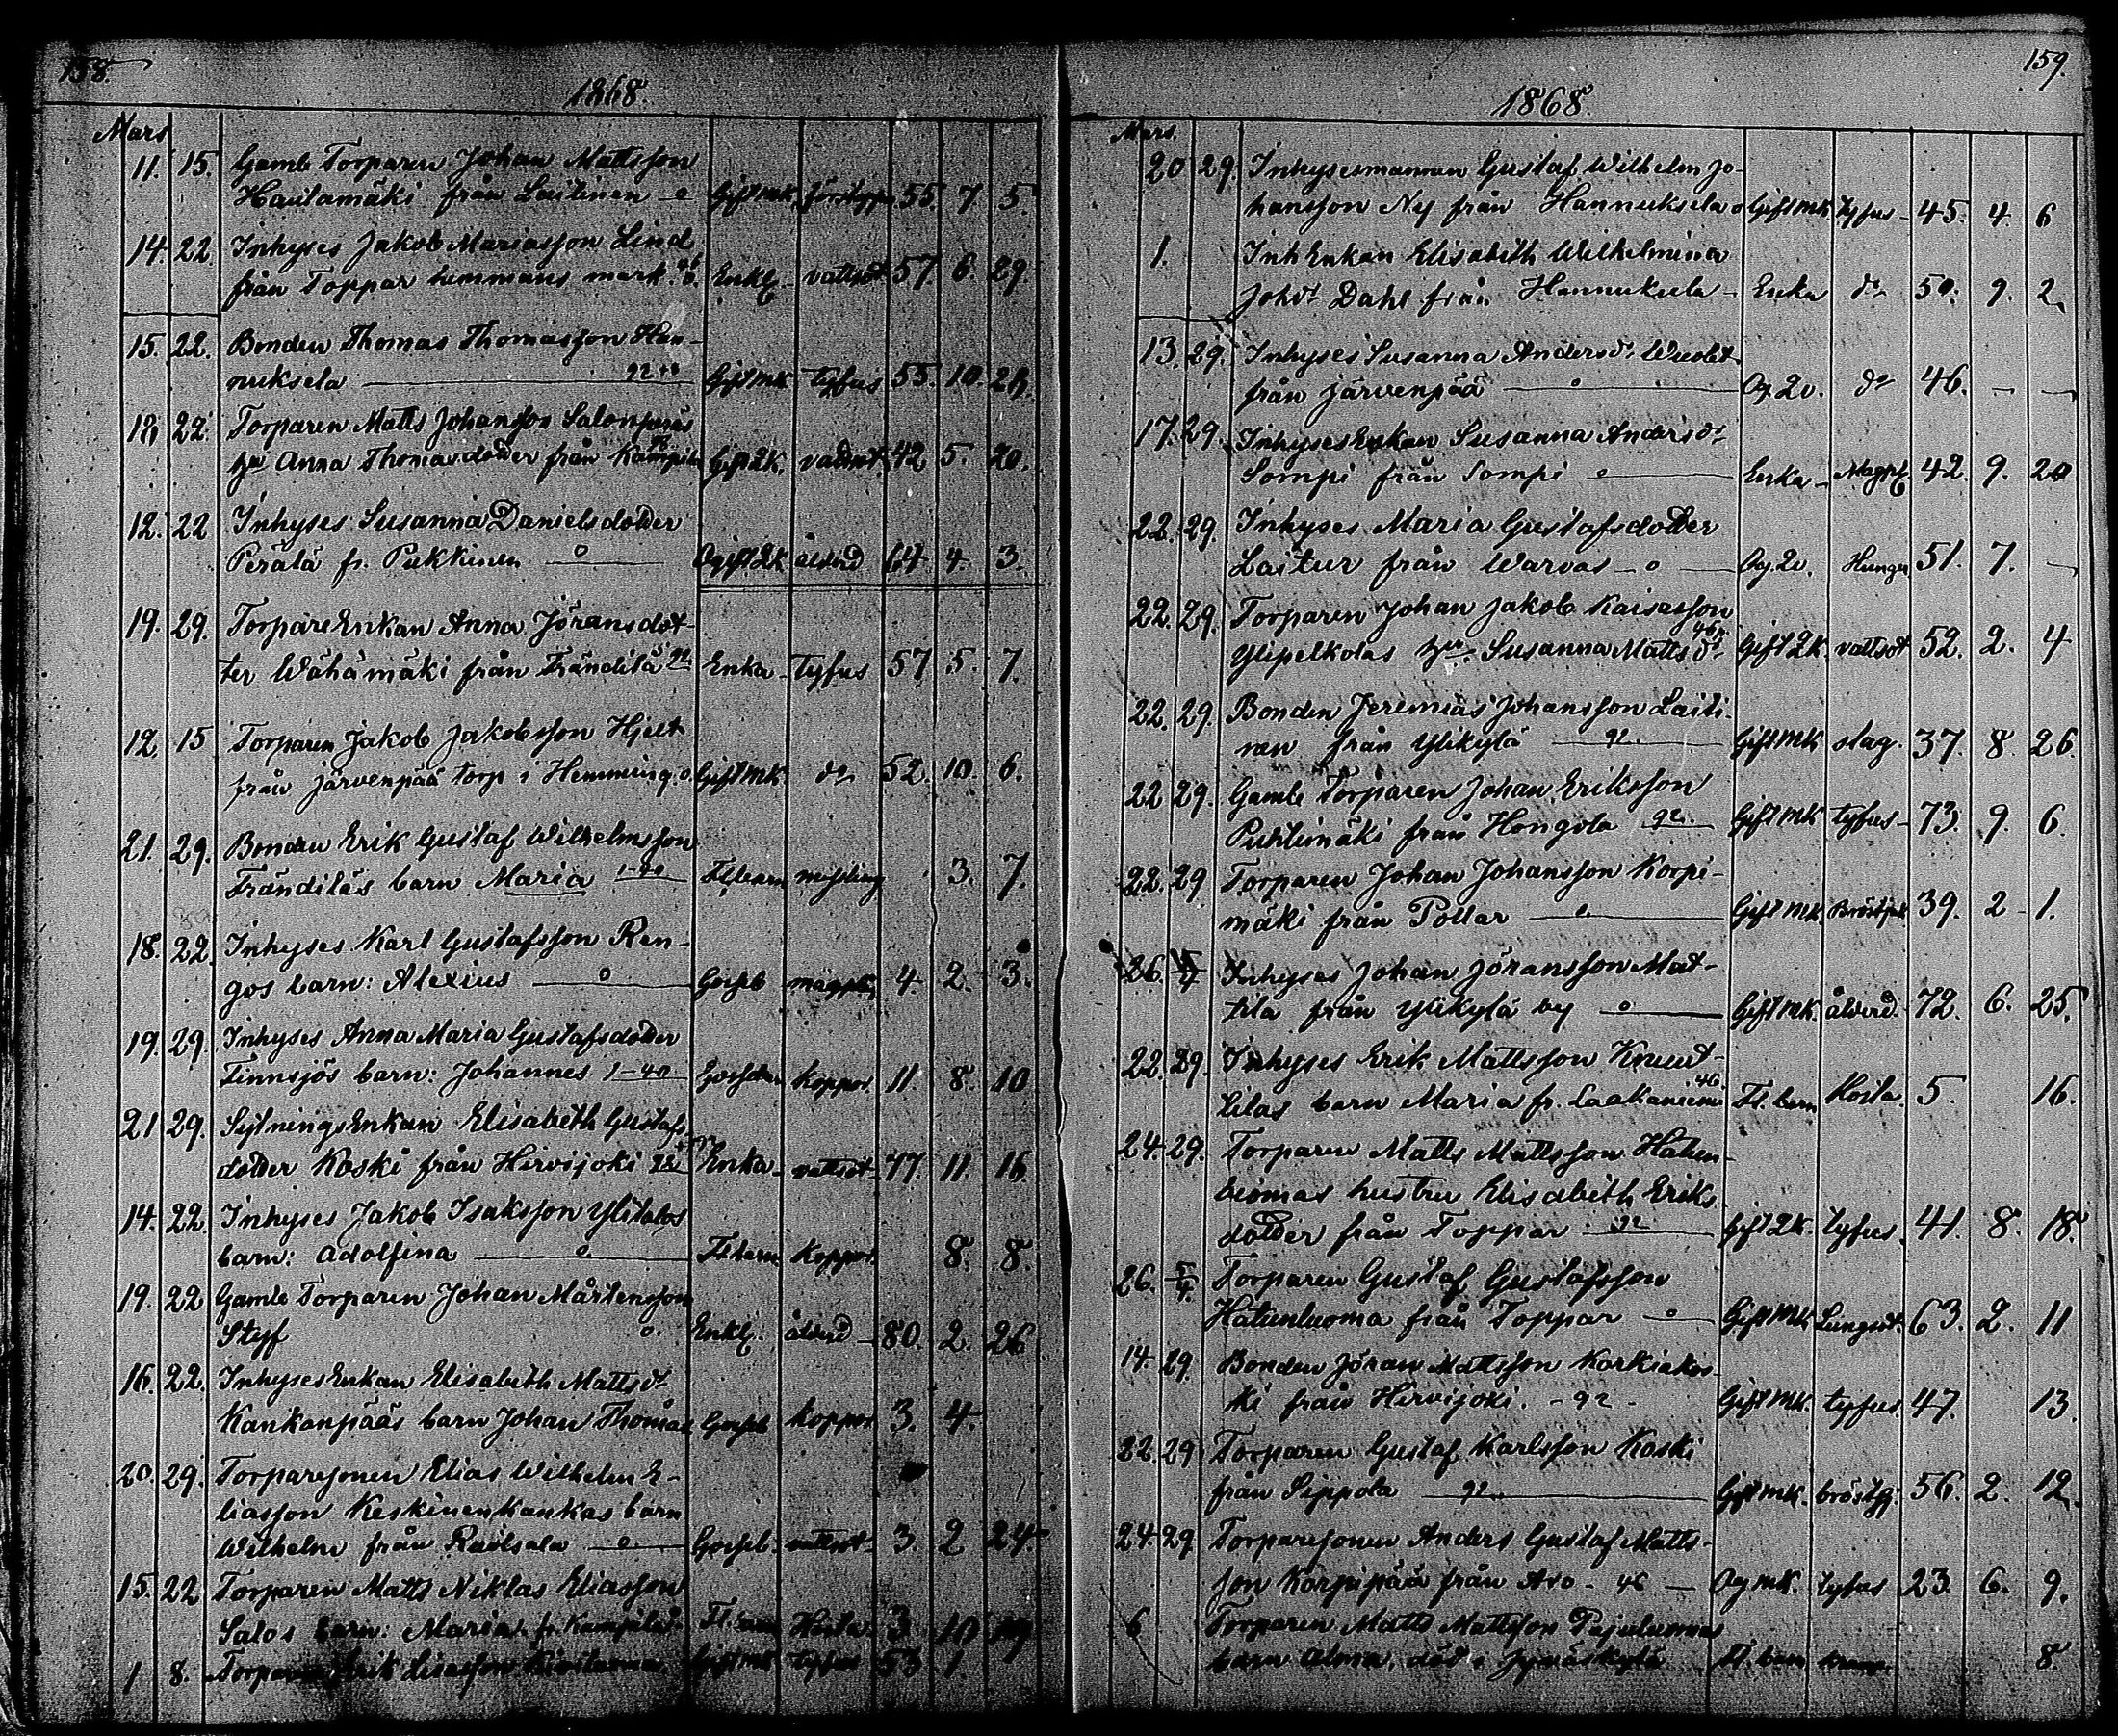 158.
1868.
Mars
11. 15. Gamle Torparen Johan Mattsson
Hautamäki från Laitinen - o Gift mk. 55. 7. 5.
14. 22. Inhyses Jakob Mariasson Lind
från Toppar hemmans mark. Enkl. vattsot 57. 6. 29.
15. 22. Bonden Thomas Thomasson Han-
nuksela Gift mk tyfus 55. 10. 28.
18 22. Torparen Matts Johansson Salonperäs
hu Anna Thomasdotter från Kampila Gift 2k. vattsot 42 5. 20.
12. 22 Inhyses Susanna Danielsdotter
Perälä fr. Pukkinen o Ogift 2k ålderd 64 4. 3.
19. 29. TorpareEnkan Anna Jöransdot-
ter Wähämäki från Frändilä Enka - Tyfus 57 5. 7.
12. 15 Torparen Jakob Jakobsson Hjelt
från Järvenpää torp i Hemming. o. Gift mk. do 52. 10. 6.
21. 29. Bonden Erik Gustaf Wilhelmsson
Frändiläs barn Maria Fl. barn missling 3. 7.
18. 22. Inhyses Karl Gustafsson Ren-
gos barn: Alexius o Gosseb 4. 2. 3.
19. 29. Inhyses Anna Maria Gustafsdotter
Finnsjös barn: Johannes 1-40 Gossebarn Koppor. 11. 8. 10
21 29. SytningsEnkan Elisabeth Gustafs
dotter Koski från Hirvijoki Enka - vattsot - 77. 11. 16
14. 22. Inhyses Jakob Isaksson Ylitalos
barn: Adolfina o Fl. barn Koppor. 8. 8.
19. 22 Gamle Torparen Johan Mårtensson
Styf o. Enkl. ålderd - 80. 2. 26
16. 22. InhysesEnkan Elisabeth Matts dr
Kankanpääs barn Johan Thomas Gosseb Koppor 3. 4.
20. 29. Torparesonen Elias Wilhelm E-
liasson Keskinenkankas barn
Wilhelm från Ruotsala o Gosseb. vattsot 3. 2 24.
15. 22 Torparen Matts Niklas Eliasson
Salos barn: Maria fr. Kampila Fl. barn Hosta 3 10 19
1 8. Torparen Erik Gift mk Tyfus 53 1.
159.
1868.
Mars.
20 29. Inhysesmannen Gustaf Wilhelm Jo-
hansson Ny från Hannuksela o Gift mk tyfus - 45. 4. 6
1. Inh Enkan Elisabeth Wilhelmina
Johdr Dahl från Hannuksela - Enka do 50. 9. 2.
13. 29. Inhyses Susanna Anders dr
från Järvenpää o Og. 2v. do 46. - -
17. 29. InhysesEnkan Susanna Anders dr
Sompi från Sompi o Enka - Magpl. 42. 9. 20
22. 29. Inhyses Maria Gustafsdotter
Laitur från Warvas - o - Og. 2v. Hunger 51. 7. -
22. 29. Torparen Johan Jakob Kaisasson
Ylipelkolas hu. Susanna Matts dr Gift 2k. vattsot 52. 2. 4
22. 29. Bonden Jeremias Johansson Laiti-
nen från Ylikylä 92. Gift mk slag. 37. 8. 26.
22 29. Gamle Torparen Johan Eriksson
Puhtimäki från Hongola 92. Gift mk tyfus - 73. 9. 6.
22. 29 Torparen Johan Johansson Korpi-
mäki från Pottar o Gift mk. 39. 2 - 1.
26. 5/4 Inhyses Johan Jöransson Mat-
tila från Ylikylä by o Gift mk. ålderd. 72. 6. 25.
22. 29. Inhyses Erik Mattsson Knuut-
tilas barn Maria fr. Laakaniemi Fl. barn Hosta. 5. 16.
24. 29. Torparen Matts Mattsson Haten-
luomas hustru Elisabeth Eriks
dotter från Toppar 92 Gift 2k. tyfus. 41. 8. 18.
26. 5/4. Torparen Gustaf Gustafsson
Hatenluoma från Toppar - o Gift mk Lungsot. 63. 2. 11
14. 29. Bonden Jöran Mattsson Karkiakos-
ki från Hirvijoki. - 92 - Gift mk. tyfus. 47. 13.
22. 29 Torparen Gustaf Karlsson Koski
från Sippola 92. Gift mk. 56. 2. 12.
24. 29. Torparesonen Anders Gustaf Matts-
son Korpipää från Aro - 46 - Og mk. tyfus 23. 6. 9.
6 Torparen Matts Mattsson Pajuluomas
barn Alma, död i Jyväskylä Fl. barn 8.